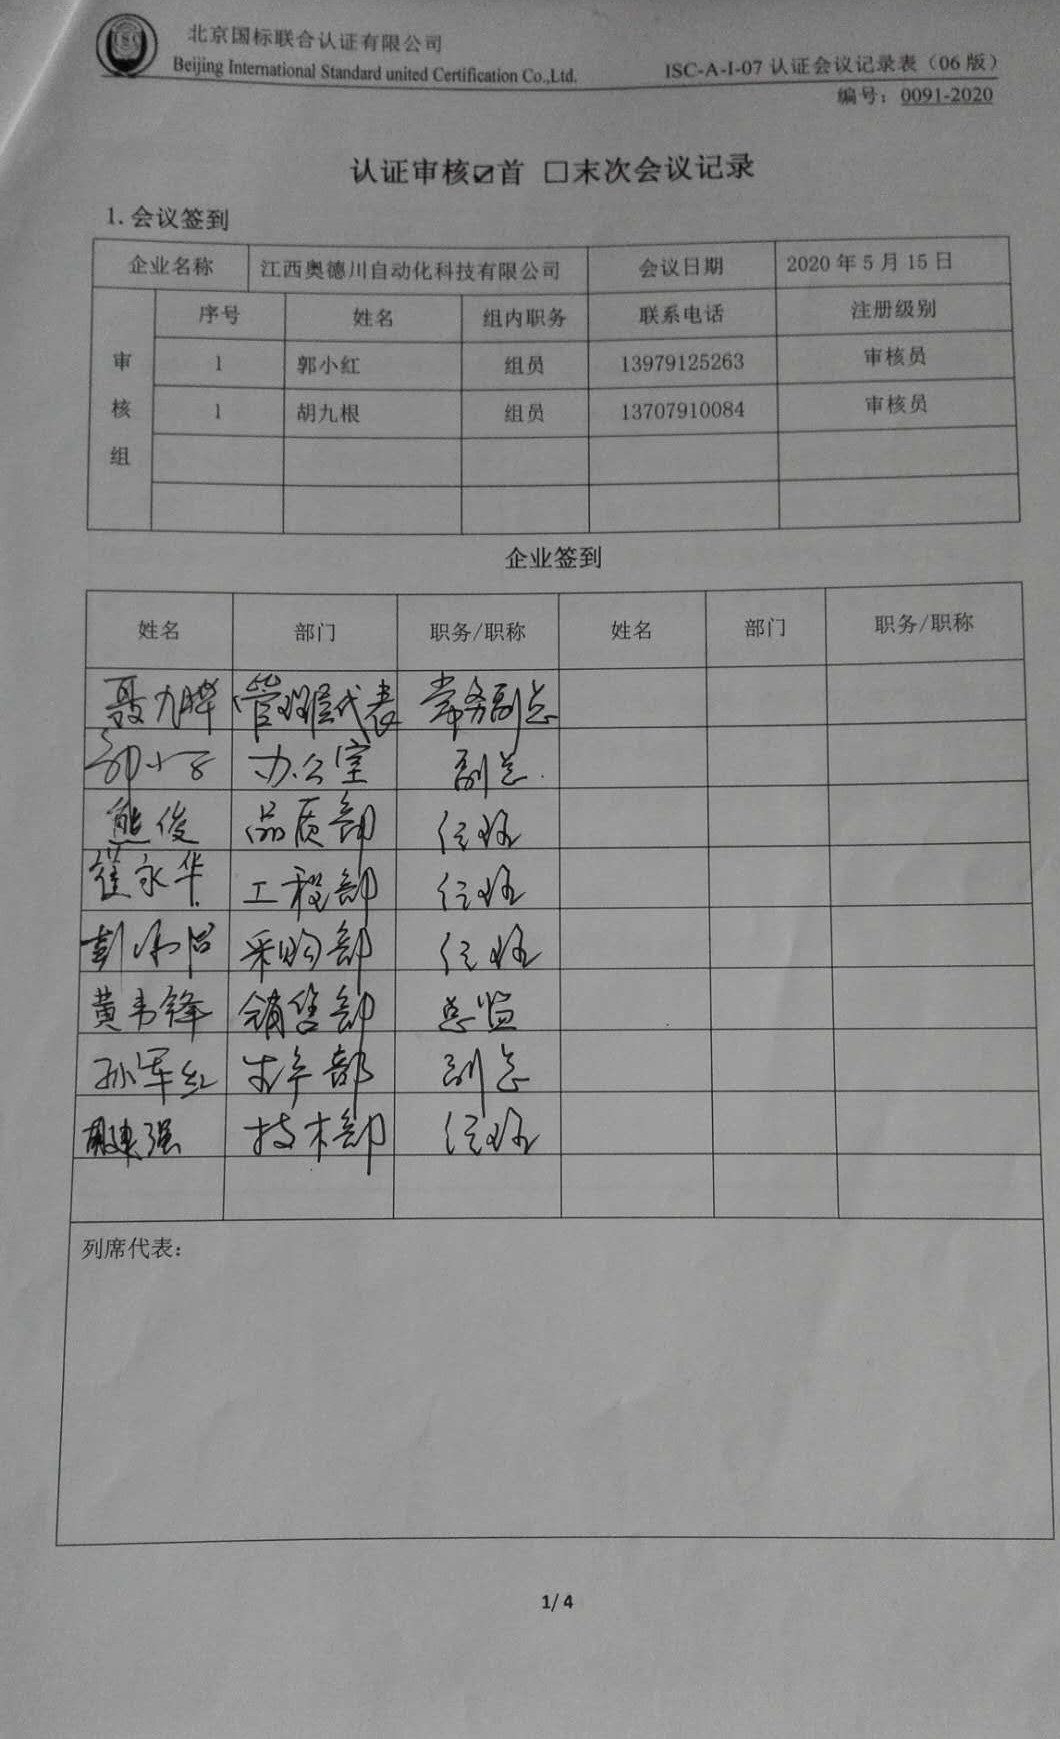 北京国标联合认证有限公司
Beijing International Standard united Certification Co.,Ltd.
ISC-A-I-07 认证会议记录表（06 版）
编号：0091-2020
认证审核☑首 □末次会议记录
1. 会议签到
企业名称 江西奥德川自动化科技有限公司 会议日期 2020 年 5 月 15 日
审核组 序号 姓名 组内职务 联系电话 注册级别
1 郭小红 组员 13979125263 审核员
1 胡九根 组员 13707910084 审核员
企业签到
姓名 部门 职务/职称 姓名 部门 职务/职称
管理层代表 常务副总
办公室 副总
熊俊 品质部 经理
崔永华 工程部 经理
采购部 经理
黄韦锋 销售部 总监
孙军红 生产部 副总
技术部 经理
列席代表：
1/ 4